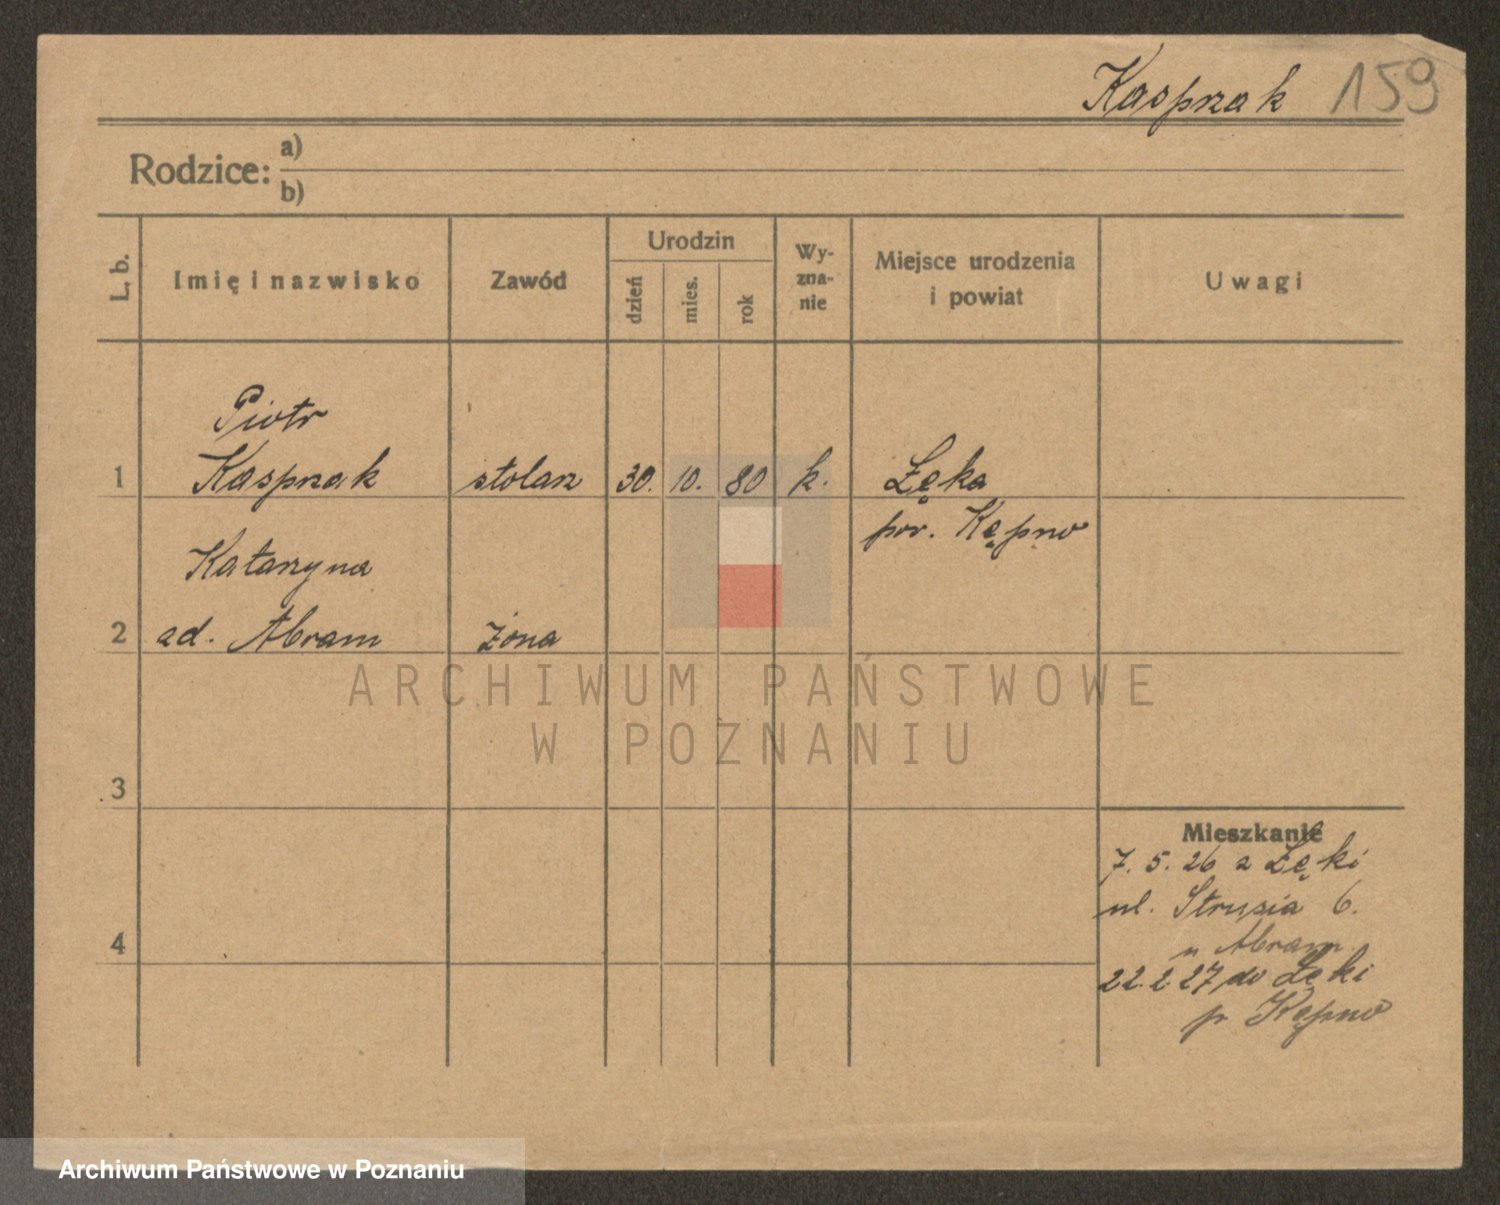 Kasprzak 159
Rodzice: a)
b)
L. b.
Imię i nazwisko
Zawód
Urodzin
dzień
mies.
rok
Wy-
zna-
nie
Miejsce urodzenia
i powiat
Uwagi
Piotr
1 Kasprzak stolarz 30. 10. 80 k. Łęka
pow. Kępno
Katarzyna
2 zd. Abram żona
3
4
Mieszkanie
7. 5. 26 z Łęki
ul. Strusia 6.
u Abram.
22. 2 27 do Łęki
p Kępno
ARCHIWUM PAŃSTWOWE
W POZNANIU
Archiwum Państwowe w Poznaniu